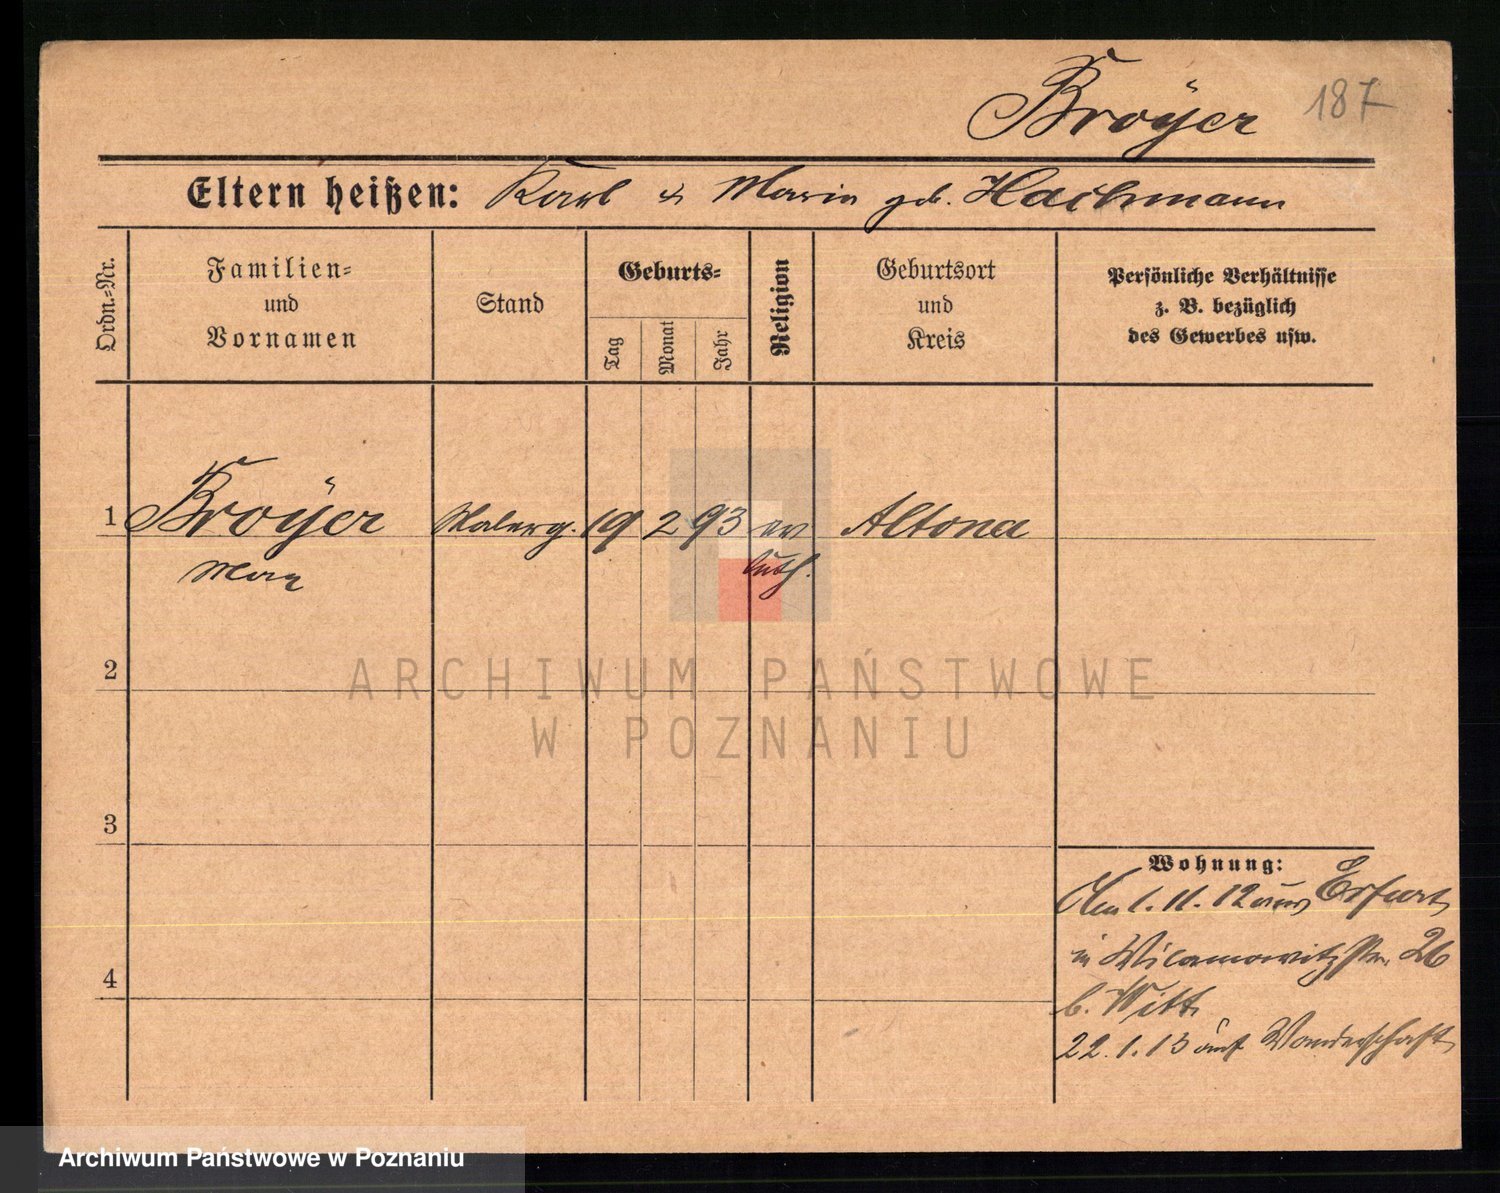 Broÿer 187
Eltern heißen: Karl & Marie geb. Hachmann
Ordn.=Nr.
Familien=
und
Vornamen
Stand
Geburts=
Tag
Monat
Jahr
Religion
Geburtsort
und
Kreis
Persönliche Verhältnisse
z. B. bezüglich
des Gewerbes usw.
1 Broÿer Malerg. 19 2 93 ev Altona
Max luth.
2
3
4
Wohnung:
Am 1.11.12 aus Erfurt
in Wilamowitzstr. 26
b. Witt
22.1.13 auf Wanderschaft
ARCHIWUM PAŃSTWOWE
W POZNANIU
Archiwum Państwowe w Poznaniu